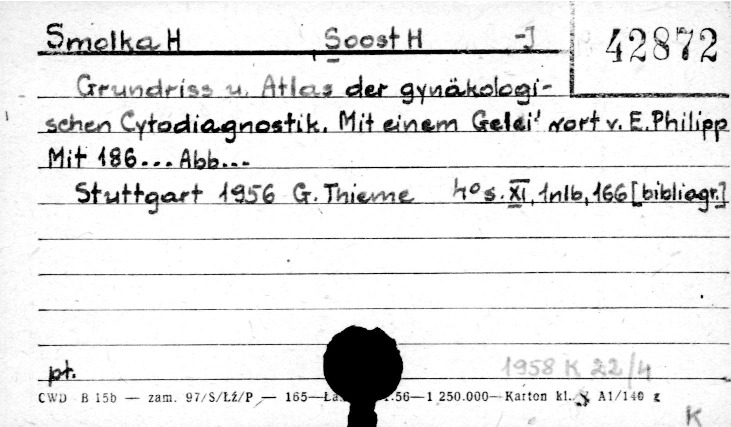 Smolka H Soost H -J 42872
Grundriss u. Atlas der gynäkologi-
schen Cytodiagnostik. Mit einem Gelei' wort v. E. Philipp
Mit 186... Abb...
Stuttgart 1956 G. Thieme 4° s. XI, 1nlb, 166 [bibliogr.]
pt. 1958 K 22/4
CWD B 15b — zam. 97/S/Łż/P — 165— .56—1 250.000— Karton kl. A1/140 g
K